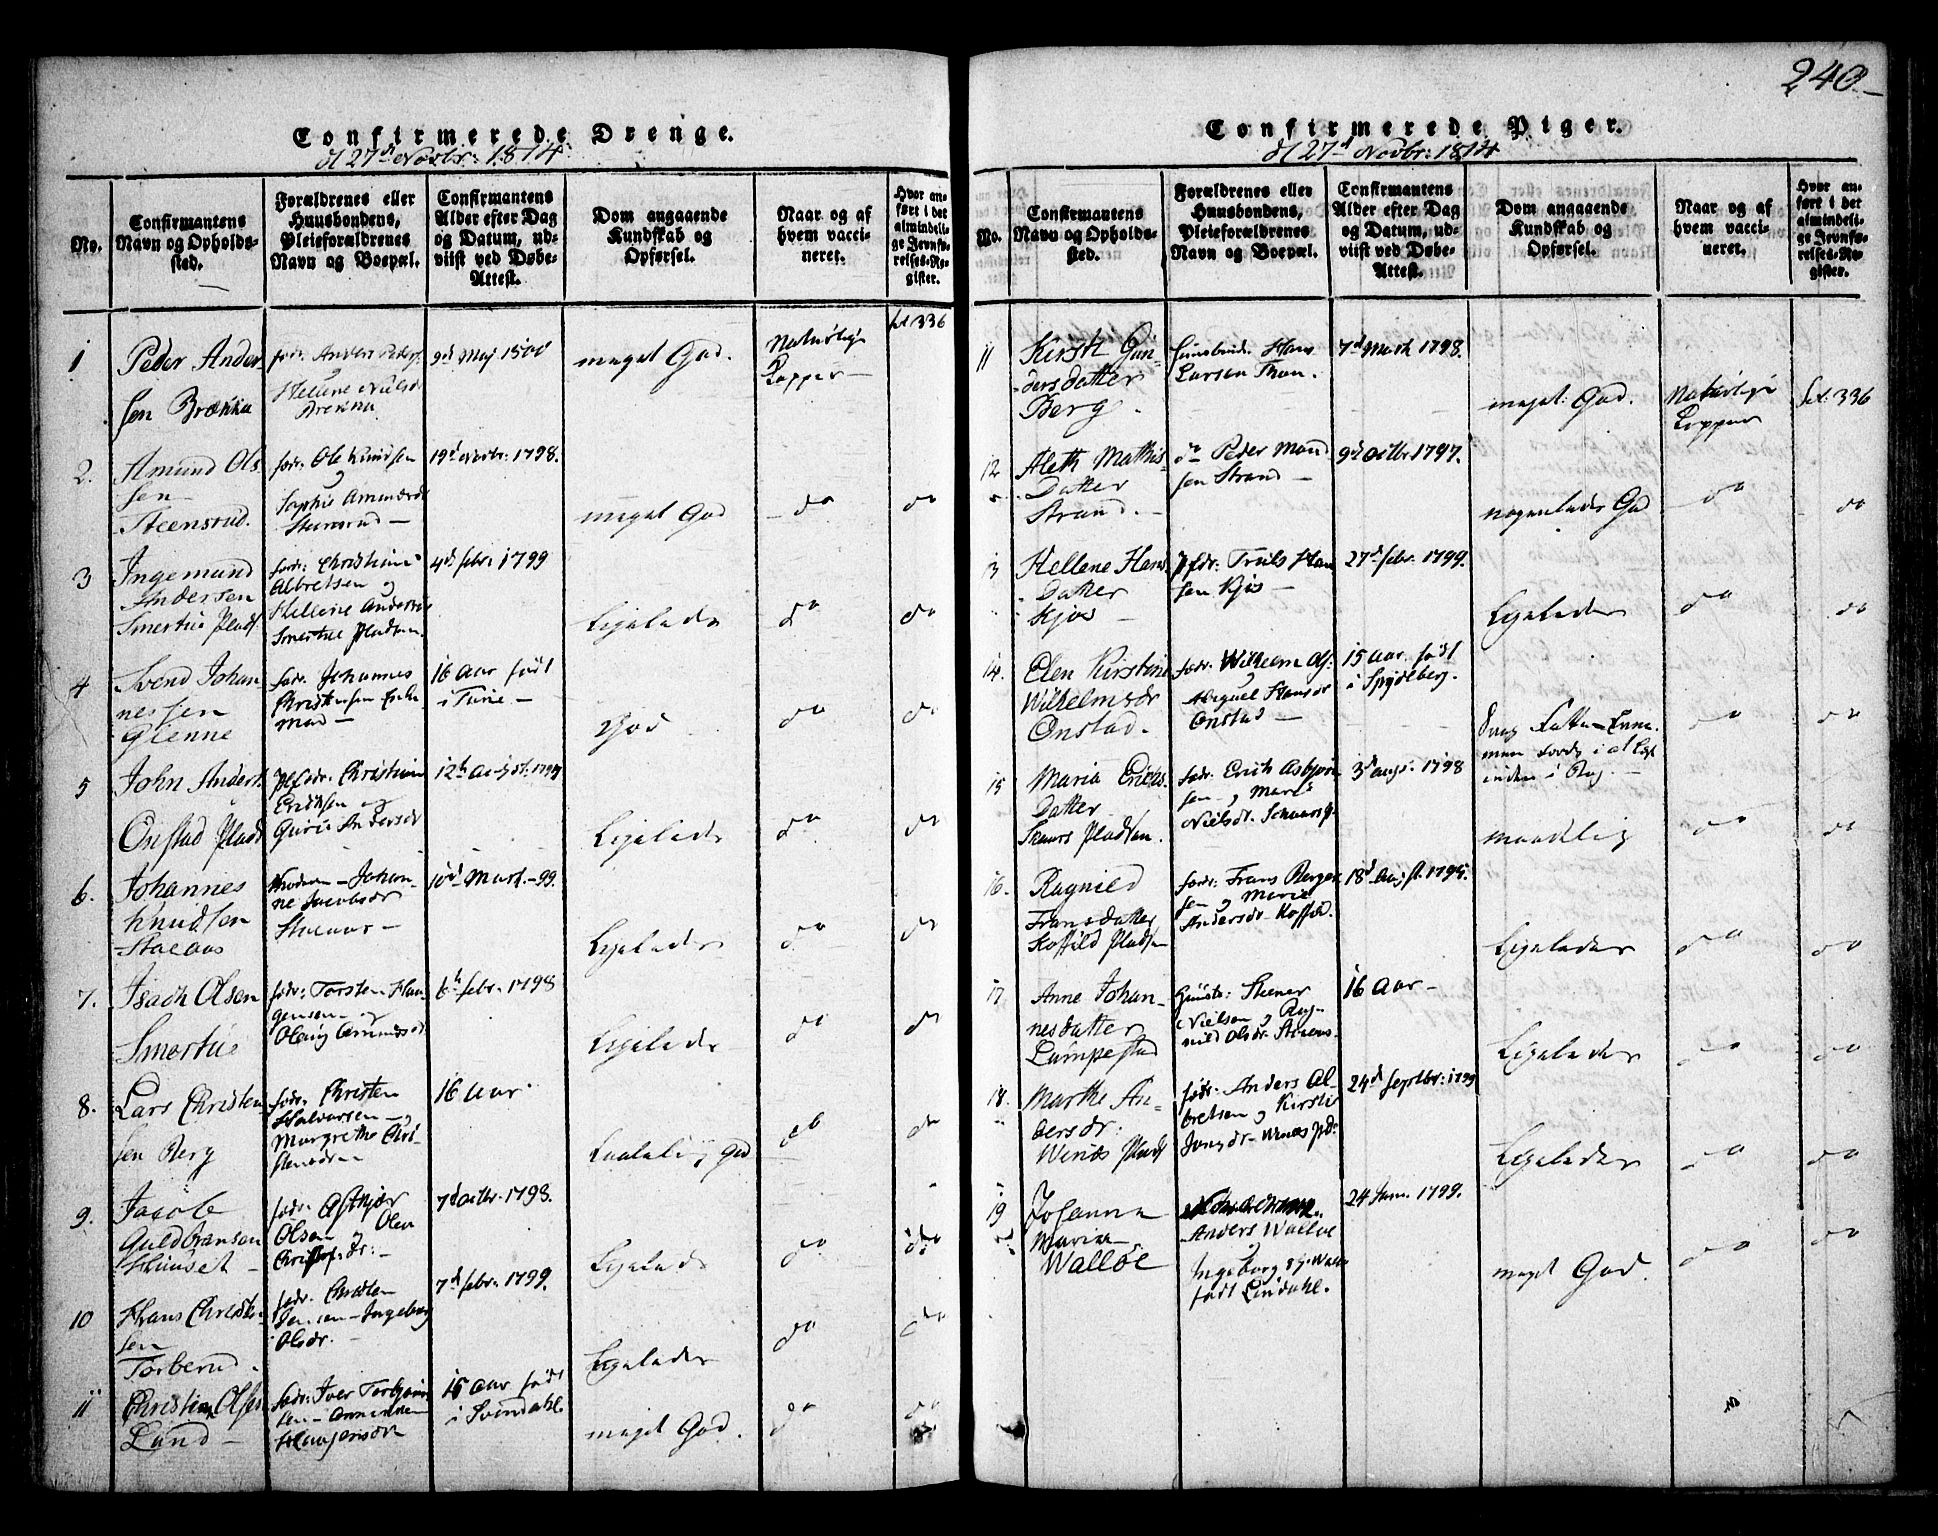 240.
Confirmerede Drenge.
d 27de Novbr: 1814.
No.
Confirmantens Navn og Opholdssted.
Forældrenes eller Huusbondens, Pleieforældrenes Navn og Boepæl.
Confirmantens Alder efter Dag og Datum, udviist ved Døbe-Attest.
Dom angaaende Kundskab og Opførsel.
Naar og af hvem vaccineret.
Hvor anført i det almindelige Jevnførelses-Register.
1
Peder Ander
sen Brekka
fodr: Anders Peders
Hellene Nielsdr
Brekka
9d Maj 1800
meget God.
Naturlige
Kopper
336
2.
Amund Ols
sen
Steensrud.
fodr: Ole Knudsen
og
Sophie Amundsdr
Steensrud
19d Novbr: 1798.
meget God
do
do
3
Ingemund
Andersen
Smertue Plads
fodr: Christian
Albretsen og
Hellene Andersdr
Smertue Pladsen.
4d febr: 1799
Ligeledes
do
do
4
Svend Johan
nessen
Glenne
fodr: Johannes
Christensen
16 Aar født
i Tune
God
do
do
5
John Anders
Onstad Plads
Plfodr: Christian
Eriksen og
Guru Andersdr
12th Augst. 1799
Ligeledes
do
do
6.
Johannes
Knudsen
Moderen Johan
ne Jacobsdr
10d Mart. 99.
Ligeledes
do
do
7.
Isach Olsen
Smertue
fodr: Torsten Hau
gensen og
6th febr. 1798
Ligeledes
do
do
8.
Lars Christen
sen Berg
fodr: Christen
Halvorsen og
Margrethe Chri
stensdr
16 Aar
Taalelig God
do
do
9.
Jacob
Guldbransen
Huuset
fodr: Asbjør
Olsen og Olea
7d octbr. 1798.
Ligeledes
do
do
10
Hans Christen
sen
Torberud.
fodr. Christen
Jensen Ingeborg
Olsdr.
7d febr. 1799.
Ligeledes
do
do
11
Christian Olsen
Lund
fodr: Iver Torbjørn
sen
Haagensdr
15 Aar født
i Svendahl
meget God.
do
do
Confirmerede Piger.
d 27d Novbr: 1814
No.
Confirmantens Navn og Opholdssted.
Forældrenes eller Huusbondens, Pleieforældrenes Navn og Boepæl.
Confirmantens Alder efter Dag og Datum, udviist ved Døbe-Attest.
Dom angaaende Kundskab og Opførsel.
Naar og af hvem vaccineret.
Hvor anført i det almindelige Jevnførelses-Register.
11
Kirsti Gun
dersdatter
Berg.
Huusbond. Hans
Larsen Thon.
7d Marth 1798.
meget God.
Naturlige
Kopper
336
12
Aleth Mathis
Datter
Strand.
Peder Mand
sen Strand
9d octbr 1797.
nogenledes God
do
do
13
Hellene Hans
Datter
Kjos
Plfdr: Truls Han
sen Kjos
27d febr. 1799.
Ligeledes
do
do
14.
Elen Kirstine
Wilhelmsdr
Onstad.
fodr: Wilhelm Ols
Abiguel Hansdr
Onstad
15 Aar født
i Spydeberg.
do
do
15
Maria Erichs
Datter
Skaars Pladsen.
fodr: Erich Asbjørn
sen og Mari
Nielsdr.
3d augs. 1798
maadelig
do
do
16.
Ragnild
Fransdatter
Koffild Pladsen
fodr: Frans Berger
sen og Marie
Andersdr Koffild.
18d Augst. 1795.
Ligeledes
do
do
17
Anne Johan
nesdatter
Lumpestad
Huusb: Steener
Nielsen og Rag
nild Olsdr.
16 Aar
Ligeledes
do
do
18.
Marthe An
dersdr:
Wenæs Plads
fodr: Anders Al
bretsen og Kirsti
Jonsdr Wenæs Pd:
24d Septbr: 1799
Ligeledes
do
do
19
Johanna
Maria
Walløe
Anders Walløe
og
Ingeborg Walløe
født Lindahl.
24 Jan. 1799.
meget God.
do
do